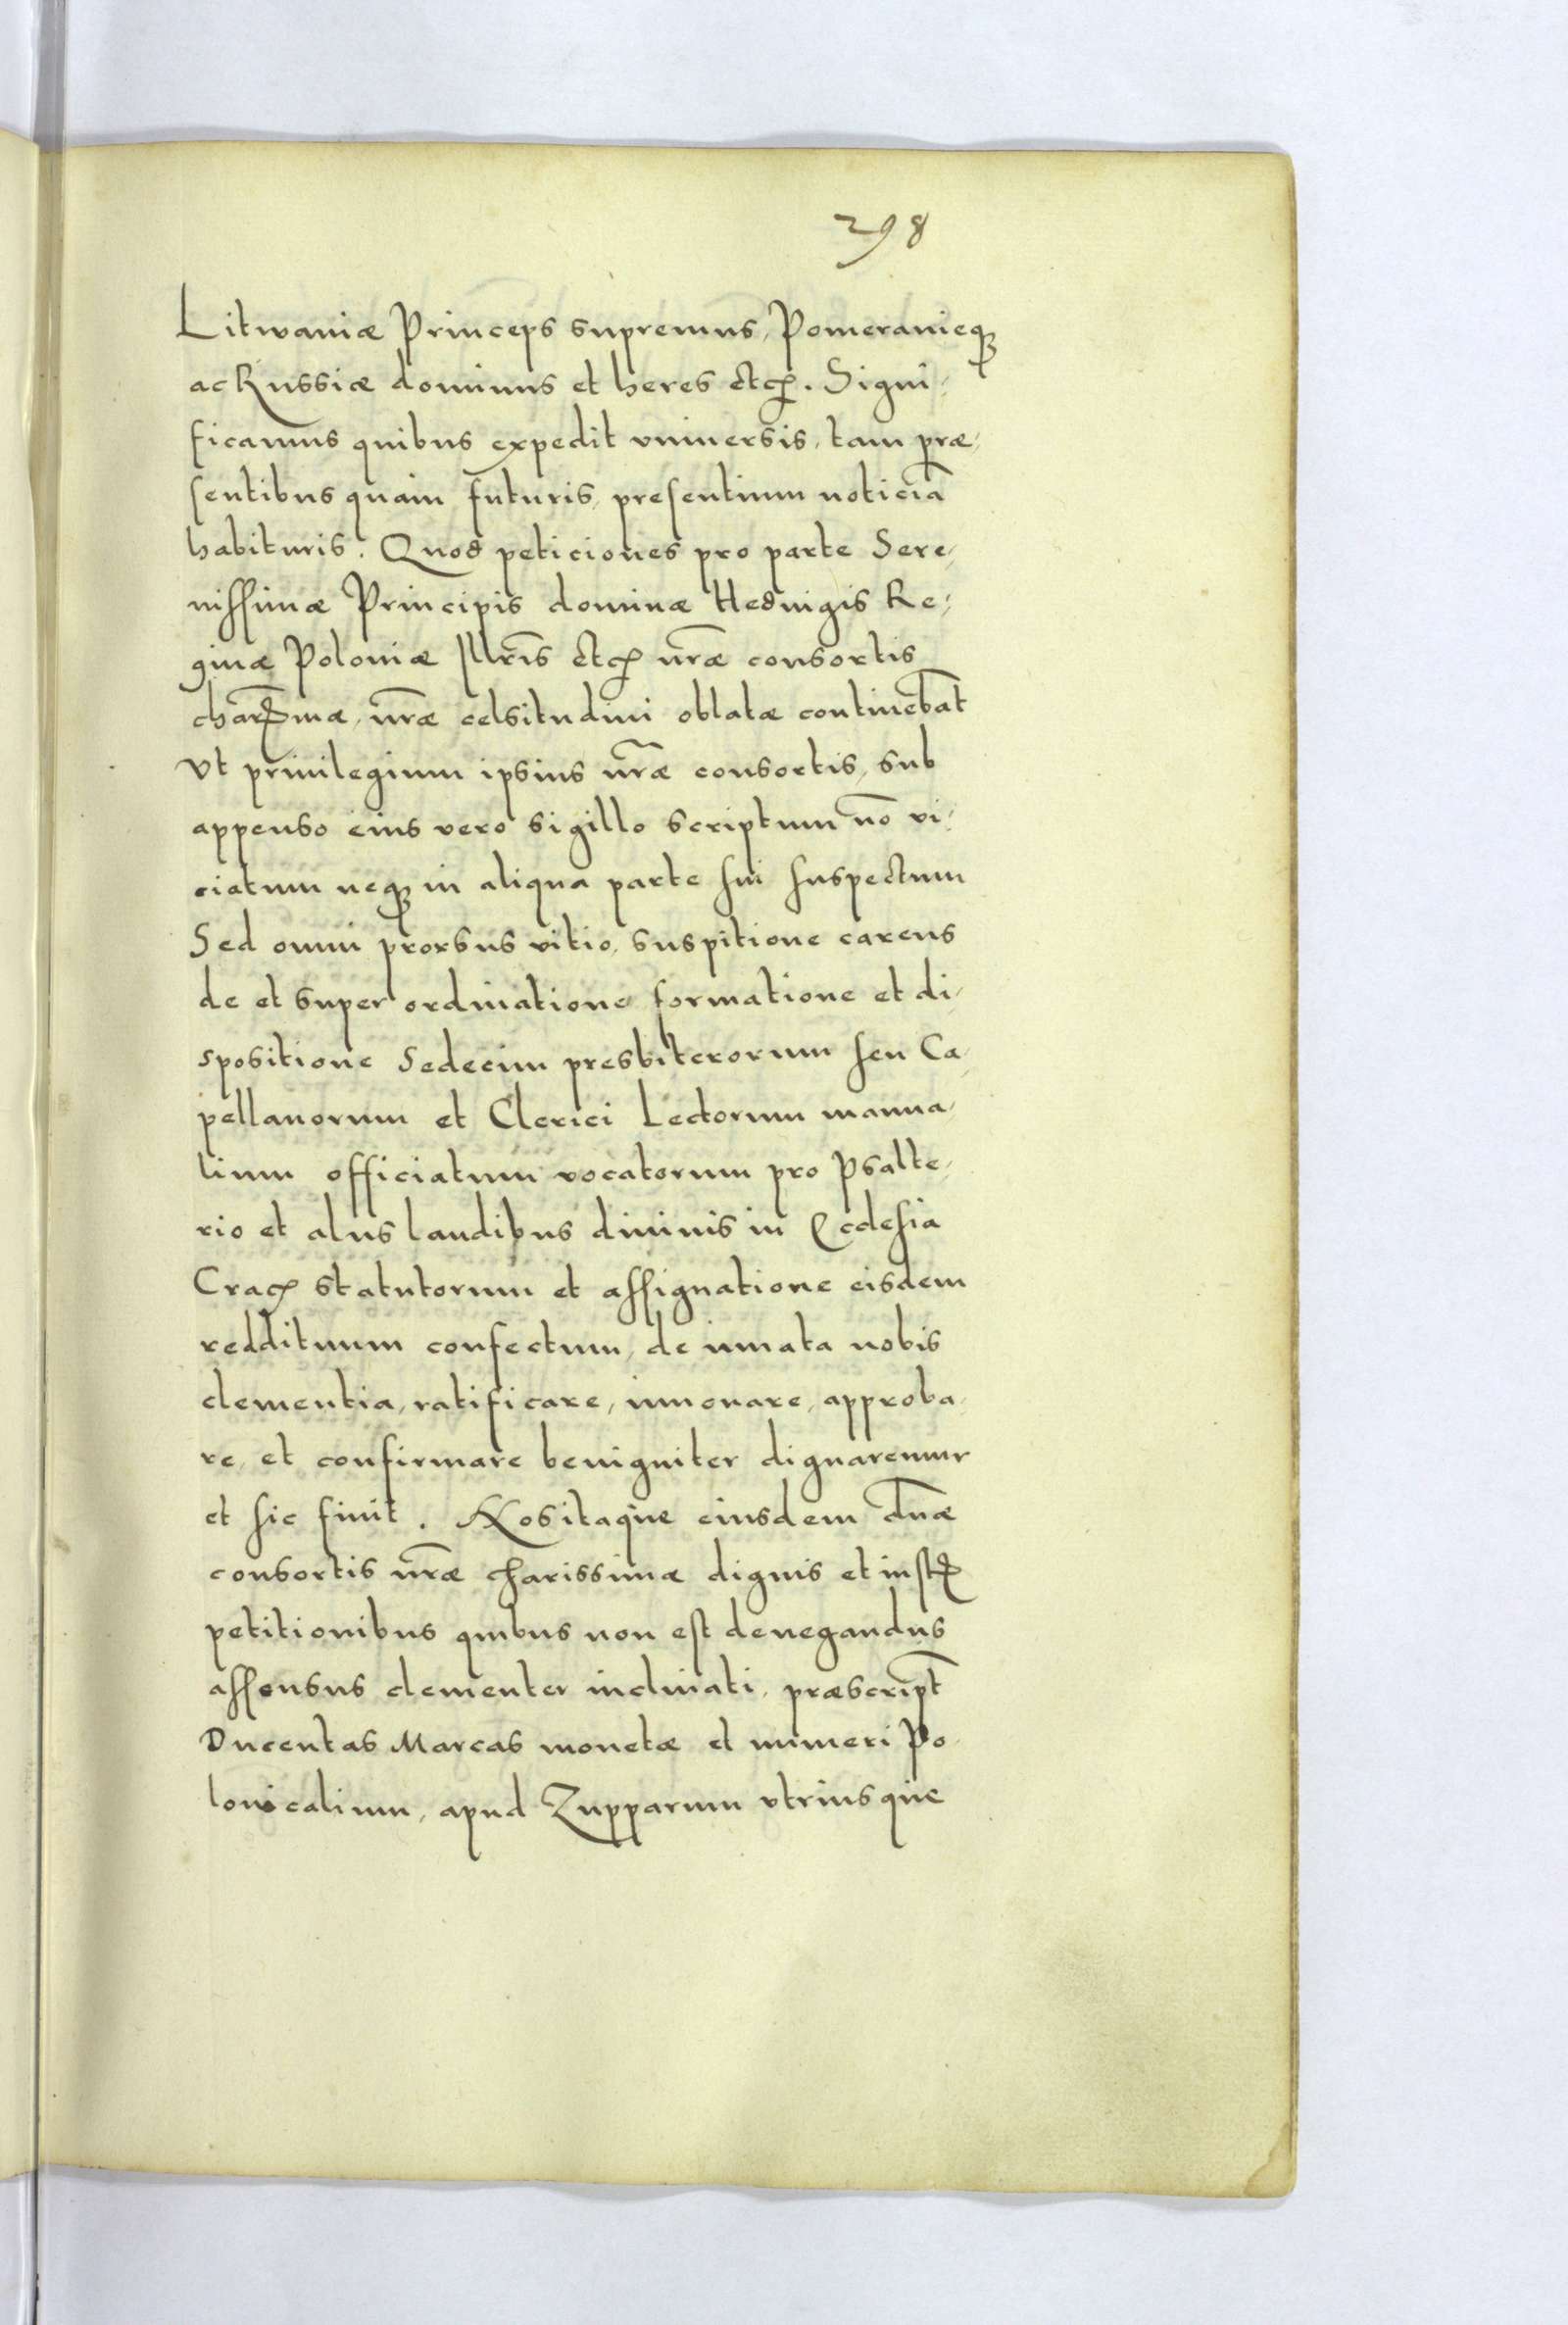 298
Litwaniæ Princeps supremus, Pomeranieqꝫ
ac Russiæ dominus et heres etc. Signi-
ficamus quibus expedit vniuersis, tam præ-
sentibus quam futuris, presentium noticia̅
habituris. Quod peticiones pro parte Sere-
nissimæ Principis dominæ Heduigis Re-
ginæ Poloniæ Illr̅is etc n̅ræ consortis
char̅mæ, n̅ræ celsitudini oblatæ contineba̅t
Vt priuilegium ipsius n̅ræ consortis, sub
appenso eius vero sigillo scriptum no̅ vi-
ciatum neqꝫ in aliqua parte sui suspectum
Sed omni prorsus vitio, suspitione carens
de et super ordinatione formatione et di-
spositione Sedecim presbiterorum seu Ca-
pellanorum et Clerici Lectorum manua-
lium officiatum vocatorum pro Psalte-
rio et alijs laudibus diuinis in Ecclesia
Crac statutorum et assignatione eisdem
reddituum confectum, de innata nobis
clementia, ratificare, innouare, approba-
re, et confirmare benigniter dignaremur
et sic finit. Nos itaque eiusdem d̅næ
consortis n̅ræ charissimæ dignis et iust
petitionibus quibus non est denegandus
assensus clementer inclinati, præscript̅
Ducentas Marcas monetæ et numeri Po-
lonicalium, apud Zupparum vtriusque